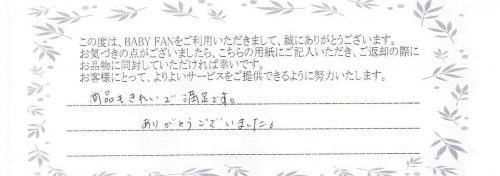 この度は、BABY FANをご利用いただきまして、誠にありがとうございます。
お気づきの点がございましたら、こちらの用紙にご記入いただき、ご返却の際に
お品物に同封していただければ幸いです。
お客様にとって、よりよいサービスをご提供できるように努力いたします。
商品もきれいで満足です。
ありがとうございました。